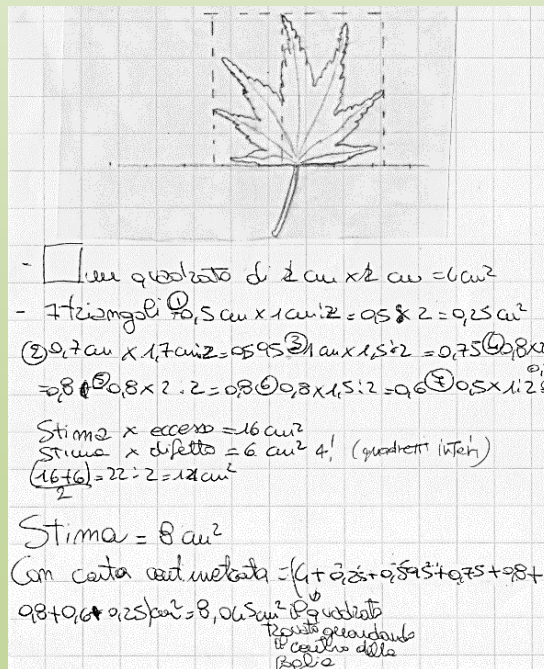 - □ un quadrato di 2 cm x 2 cm = 4 cm²
- 7 triangoli ① 0,5 cm x 1 cm : 2 = 0,5 : 2 = 0,25 cm²
② 0,7 cm x 1,7 cm : 2 = 0,595 ③ 1 cm x 1,5 : 2 = 0,75 ④ 0,8 x 2
= 0,8 ⑤ 0,8 x 2 : 2 = 0,8 ⑥ 0,8 x 1,5 : 2 = 0,6 ⑦ 0,5 x 1 : 2
Stima x eccesso = 16 cm²
Stima x difetto = 6 cm² 4! (quadretti interi)
(16+6)/2 = 22 : 2 = 11 cm²
Stima = 8 cm²
Con carta centimetrata = (4 + 0,25 + 0,595 + 0,75 + 0,8 +
0,8 + 0,6 + 0,25) cm² = 8,045 cm² quadrato
trovato guardando
il centro della